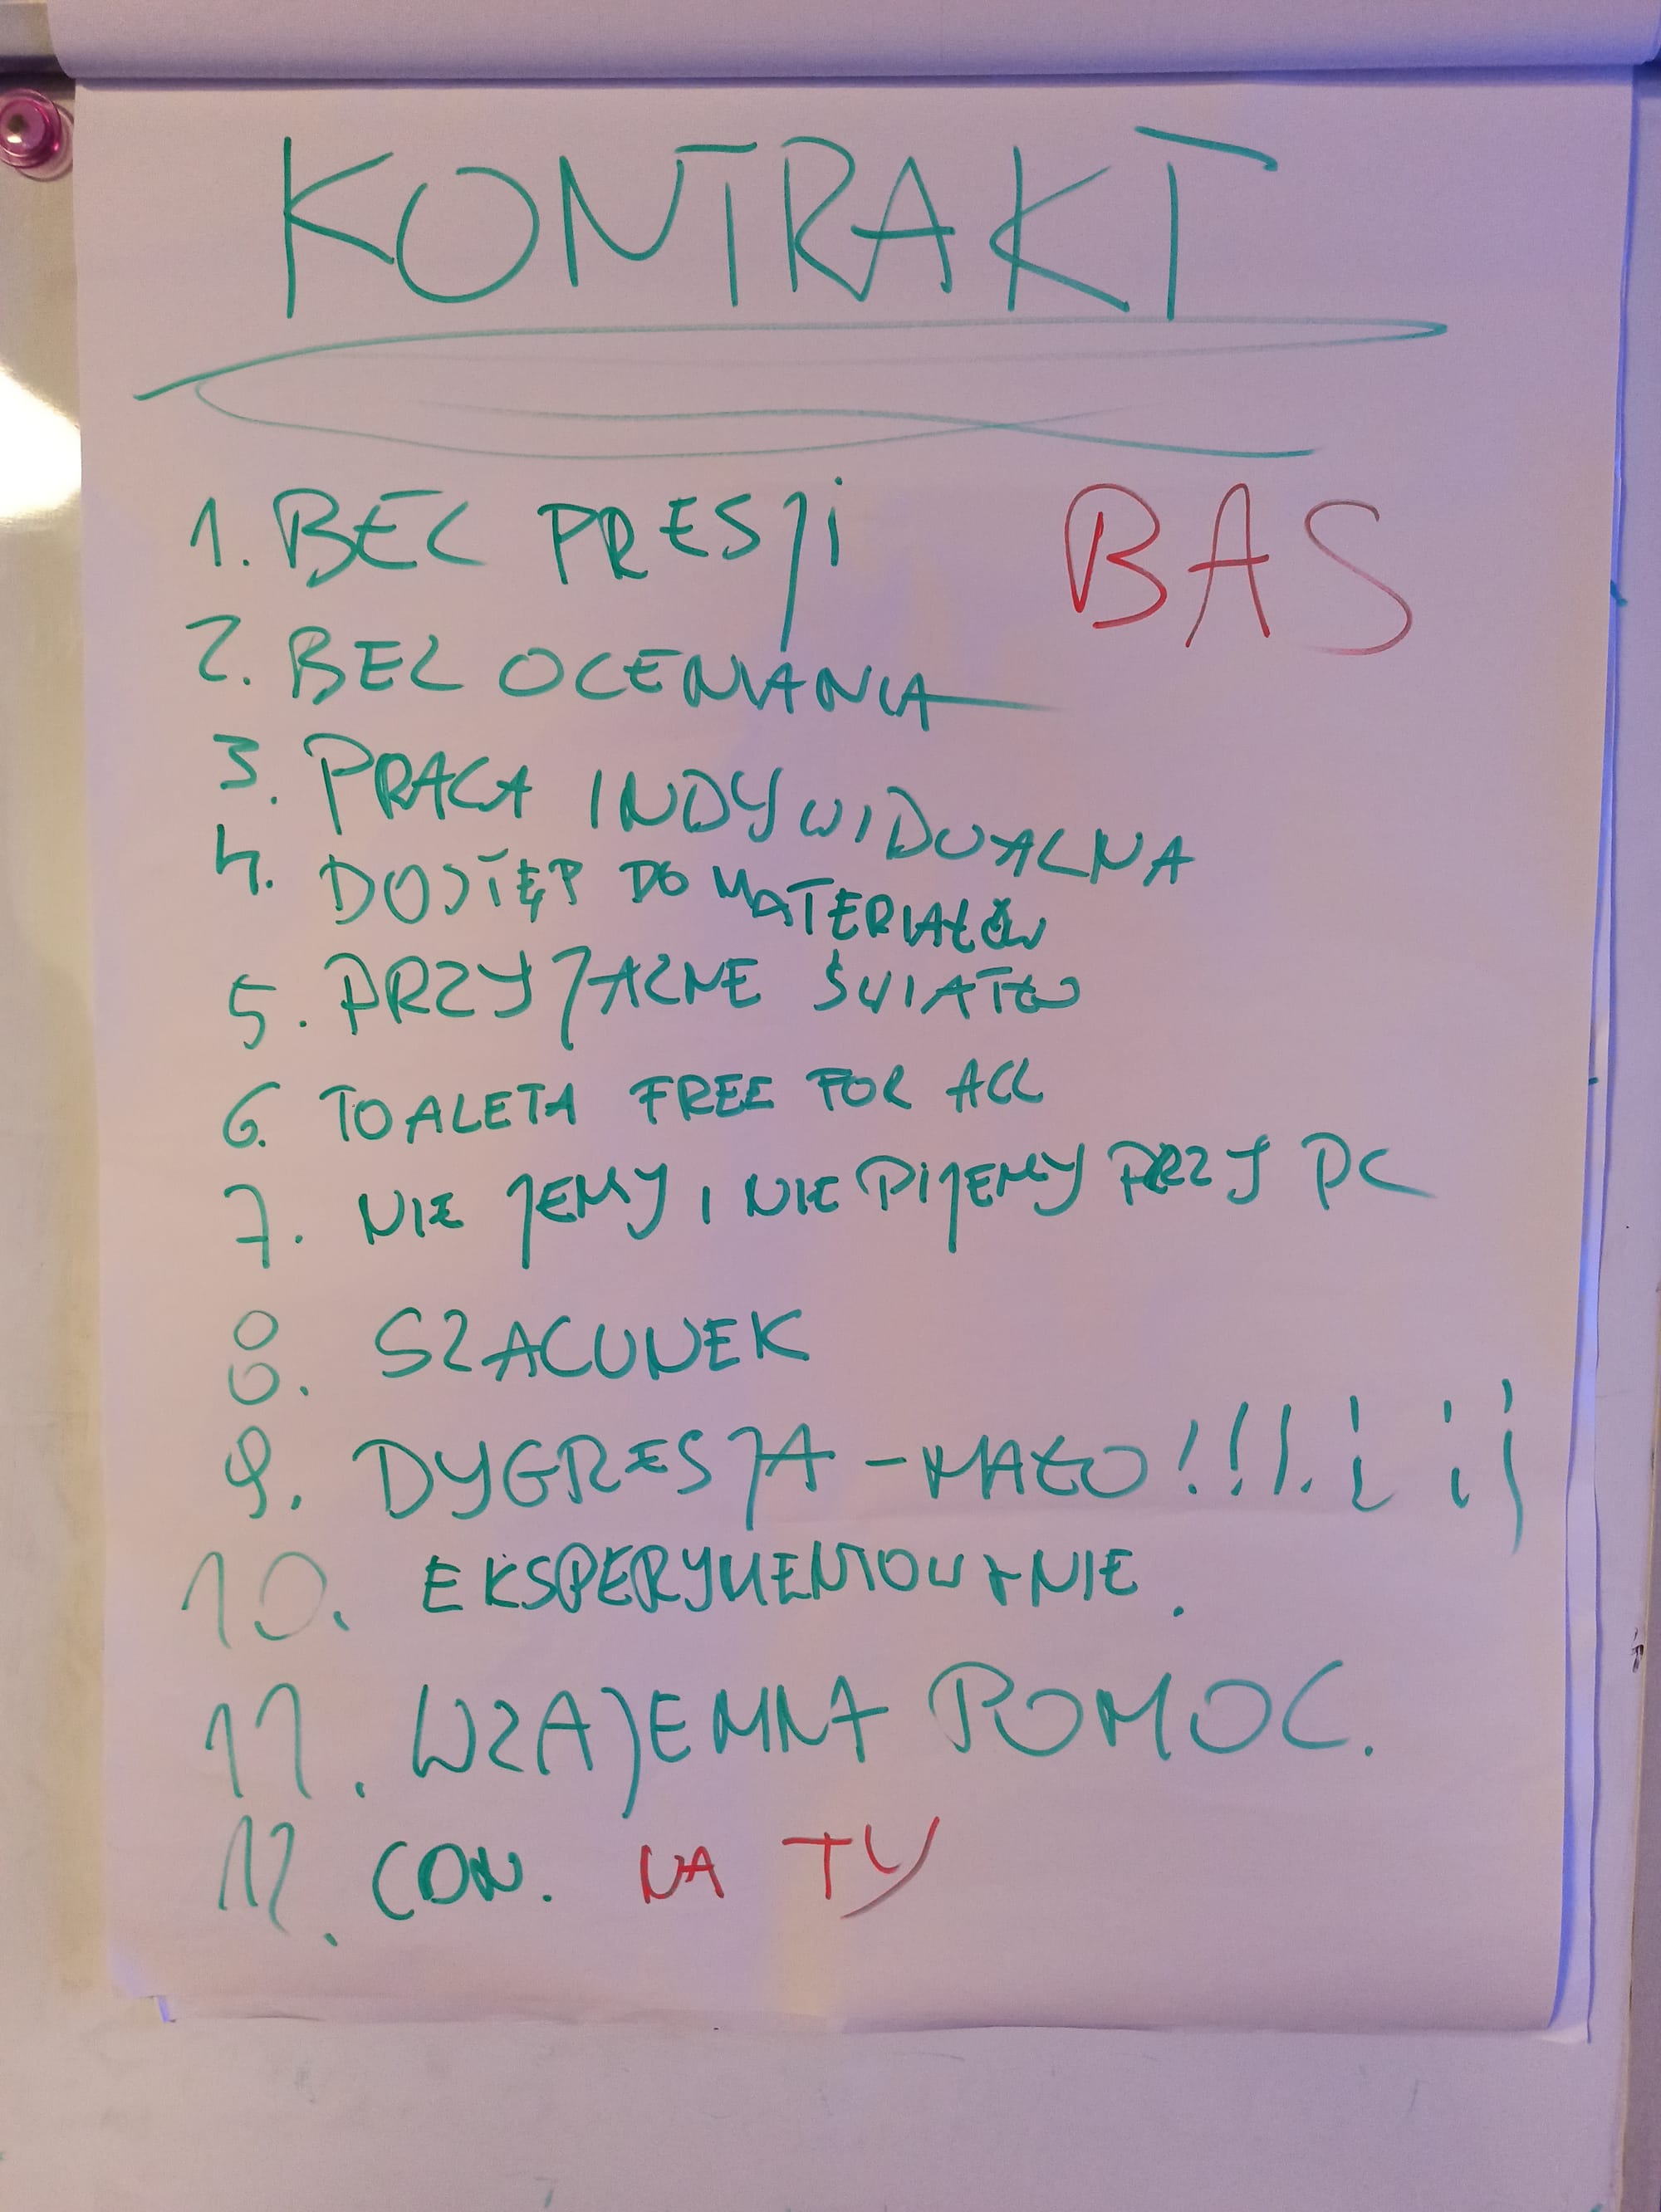 KONTRAKT
1. BEZ PRESJI
BAS
2. BEZ OCENIANIA
3. PRACA INDYWIDUALNA
4. DOSTĘP DO MATERIAŁÓW
5. PRZYJAZNE ŚWIATŁO
6. TOALETA FREE FOR ALL
7. NIE JEMY I NIE PIJEMY PRZY PC
8. SZACUNEK
9. DYGRESJA - MAŁO!!!.
10. EKSPERYMENTOWANIE.
11. WZAJEMNA POMOC.
12. CDN. NA TY